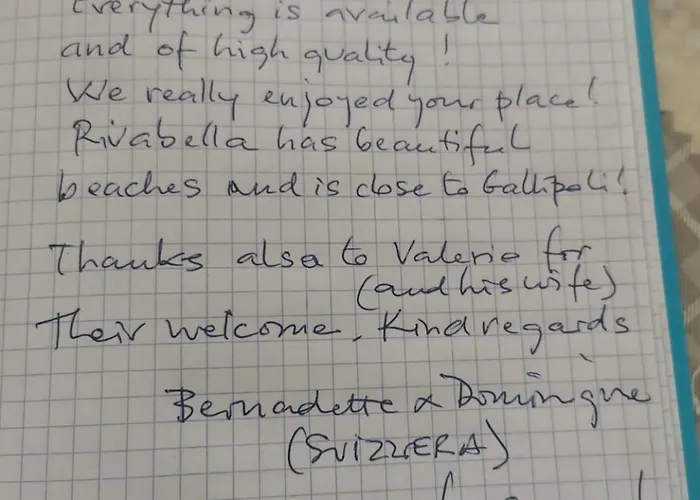 Everything is available
and of high quality!
We really enjoyed your place!
Rivabella has beautiful
beaches and is close to Gallipoli!
Thanks also to Valerio for
(and his wife)
Their welcome. Kind regards
Bernadette & Dominique
(SVIZZERA)